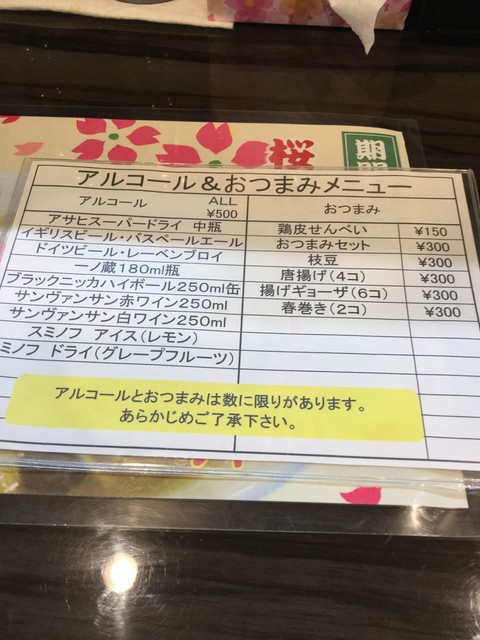 桜
アルコール&おつまみメニュー
アルコール ALL ¥500
おつまみ
アサヒスーパードライ 中瓶
イギリスビール・バスペールエール
ドイツビール・レーベンブロイ
一ノ蔵180ml瓶
ブラックニッカハイボール250ml缶
サンヴァンサン赤ワイン250ml
サンヴァンサン白ワイン250ml
スミノフ アイス(レモン)
ミノフ ドライ(グレープフルーツ)
鶏皮せんべい ¥150
おつまみセット ¥300
枝豆 ¥300
唐揚げ(4コ) ¥300
揚げギョーザ(6コ) ¥300
春巻き(2コ) ¥300
アルコールとおつまみは数に限りがあります。
あらかじめご了承下さい。